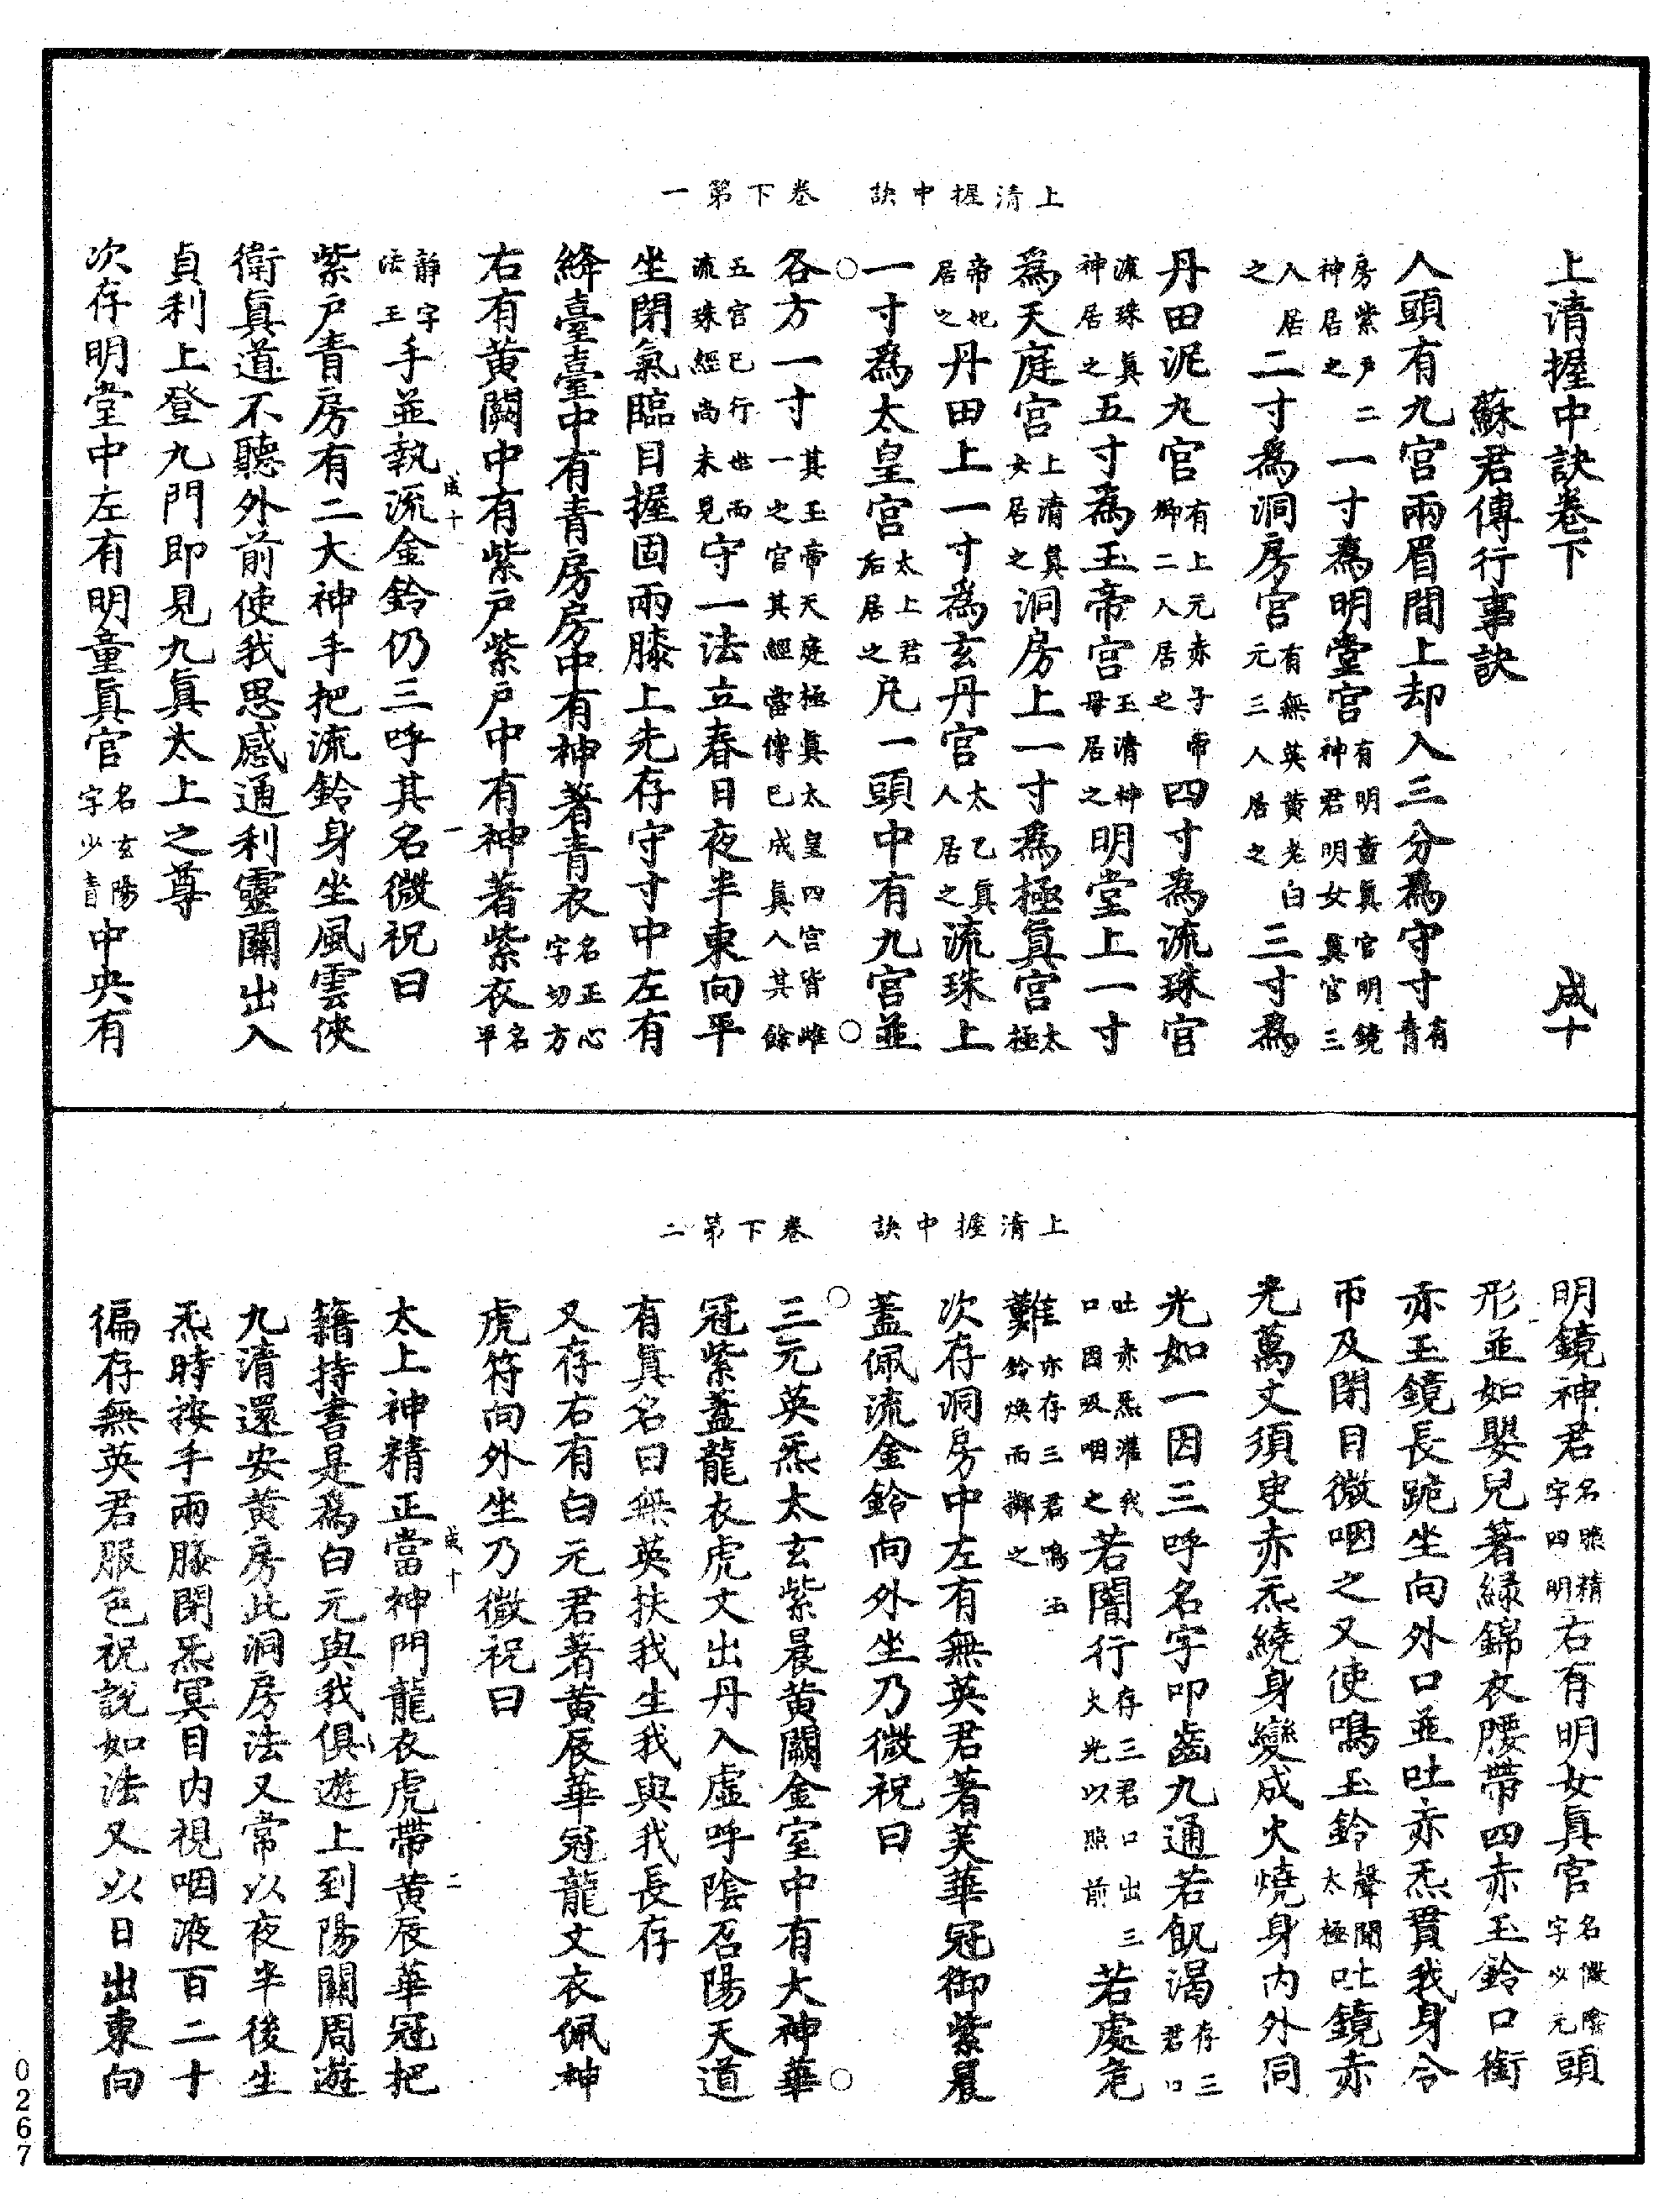 上清握中訣　卷下第一
上清握中訣卷下　成十
蘇君傳行事訣
人頭有九宮兩眉間上却入三分為守寸有青
房紫戶二神居之一寸為明堂宮有明童真官明鏡神君明女真官三
人居之二寸為洞房宮有無英黃老白元三人居之三寸為
丹田泥丸宮有上元赤子帝卿二人居之四寸為流珠宮
流珠真神居之五寸為玉帝宮玉清神母居之明堂上一寸
為天庭宮上清真女居之洞房上一寸為極真宮太極
帝妃居之丹田上一寸為玄丹宮太乙真人居之流珠上
一寸為太皇宮太上君后居之凡一頭中有九宮並
各方一寸其玉帝天庭極真太皇四宮皆雌一之宮其經當傳已成真人其餘
五宮已行世而流珠經尚未見守一法立春日夜半東向平
坐閉氣臨目握固兩膝上先存守寸中左有
絳臺臺中有青房房中有神著青衣名正心字切方
右有黃闕中有紫戶紫戶中有神著紫衣名平
靜字法王手並執流金鈴仍三呼其名微祝曰
成十　一
紫戶青房有二大神手把流鈴身坐風雲俠
衛真道不聽外前使我思感通利靈關出入
貞利上登九門即見九真太上之尊
次存明堂中左有明童真官名玄陽字少青中央有
上清握中訣　卷下第二
明鏡神君名照精字四明右有明女真官名微陰字少元頭
形並如嬰兒著綠錦衣腰帶四赤玉鈴口銜
赤玉鏡長跪坐向外口並吐赤炁貫我身令
帀及閉目微咽之又使鳴玉鈴聲聞太極吐鏡赤
光萬丈須臾赤炁繞身變成火燒身內外同
光如一因三呼名字叩齒九通若飢渴存三君口
吐赤炁灌我口因吸咽之若闇行存三君口出三火光以照前若處危
難亦存三君鳴玉鈴煥而擲之
次存洞房中左有無英君著芙華冠御紫晨
蓋佩流金鈴向外坐乃微祝曰
三元英炁太玄紫晨黃闕金室中有大神華
冠紫蓋龍衣虎文出丹入虛呼陰召陽天道
有真名曰無英扶我生我與我長存
又存右有白元君著黃辰華冠龍文衣佩神
虎符向外坐乃微祝曰
太上神精正當神門龍衣虎帶黃辰華冠把
成十　二
籍持書是為白元與我俱遊上到陽關周遊
九清還安黃房此洞房法又常以夜半後生
炁時按手兩膝閉炁冥目內視咽液百二十
徧存無英君服色祝說如法又以日出東向
0267